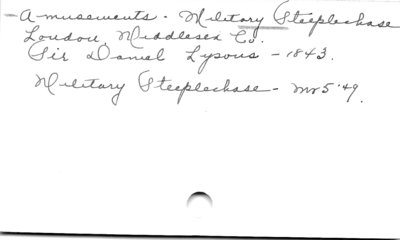 Amusements - Military Steeplechase
London, Middlesex Co.
Sir Daniel Lysons - 1843.
Military Steeplechase - Mr 5 '49.